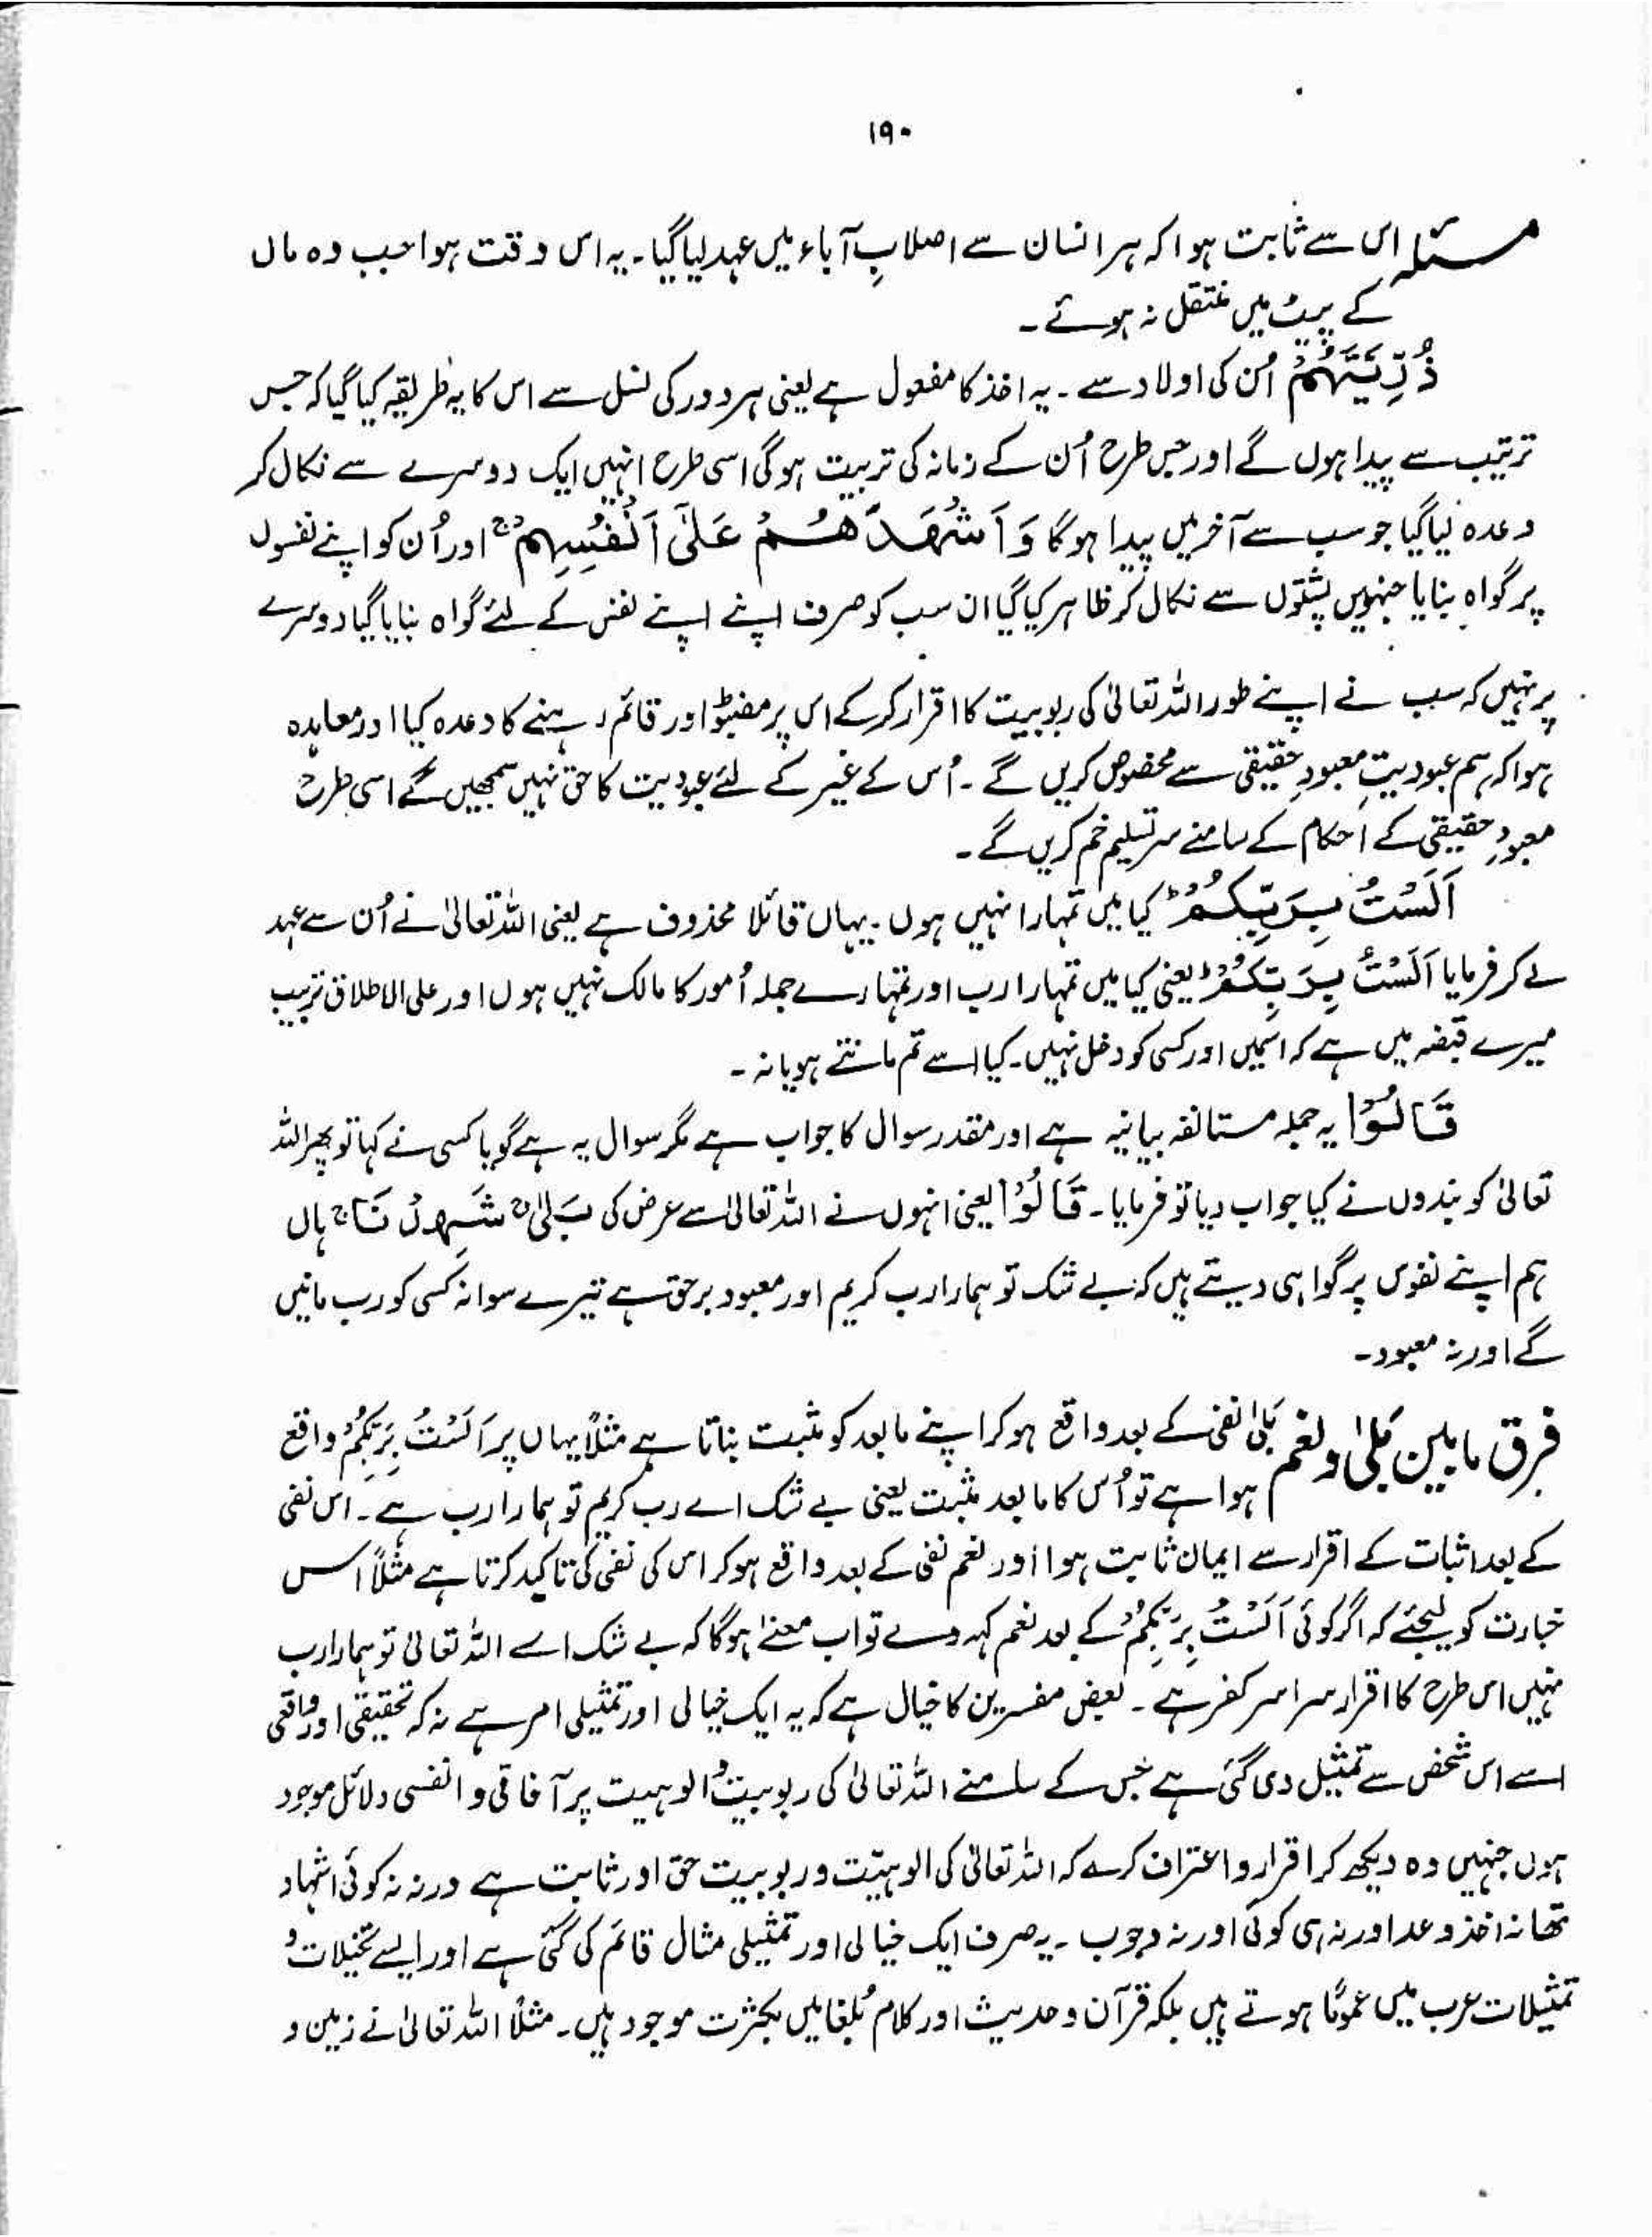 ۱۹۰
مسئلہ اس سے ثابت ہوا کہ ہر انسان سے اصلابِ آباء میں عہد لیا گیا۔ یہ اس وقت ہوا جب وہ ماں
کے پیٹ میں منتقل نہ ہوئے۔
ذُرِّيَّتَهُمْ اُن کی اولاد سے۔ یہ اخذ کا مفعول ہے یعنی ہر دور کی نسل سے اس کا یہ طریقہ کیا گیا کہ جس
ترتیب سے پیدا ہوں گے اور جس طرح اُن کے زمانہ کی تربیت ہوگی اسی طرح انہیں ایک دوسرے سے نکال کر
وعدہ لیا گیا جو سب سے آخر میں پیدا ہوگا وَاَشْهَدَهُمْ عَلٰٓى اَنْفُسِهِمْ ج اور اُن کو اپنے نفسوں
پر گواہ بنایا جنہیں پشتوں سے نکال کر ظاہر کیا گیا ان سب کو صرف اپنے اپنے نفس کے لئے گواہ بنایا گیا دوسرے
پر نہیں کہ سب نے اپنے طور اللہ تعالیٰ کی ربوبیت کا اقرار کر کے اس پر مضبوط اور قائم رہنے کا وعدہ کیا اور معاہدہ
ہوا کہ ہم عبودیتِ معبودِ حقیقی سے مخصوص کریں گے۔ اُس کے غیر کے لئے عبودیت کا حق نہیں سمجھیں گے اسی طرح
معبودِ حقیقی کے احکام کے سامنے سر تسلیم خم کریں گے۔
اَلَسْتُ بِرَبِّكُمْ ط کیا میں تمہارا نہیں ہوں۔ یہاں قائلا محذوف ہے یعنی اللہ تعالیٰ نے اُن سے عہد
لے کر فرمایا اَلَسْتُ بِرَبِّكُمْ ط یعنی کیا میں تمہارا رب اور تمہارے جملہ اُمور کا مالک نہیں ہوں اور علی الاطلاق تربیب
میرے قبضہ میں ہے کہ اسمیں اور کسی کو دخل نہیں۔ کیا اسے تم مانتے ہو یا نہ۔
قَالُوْا یہ جملہ مستانفہ بیانیہ ہے اور مقدر سوال کا جواب ہے مگر سوال یہ ہے گویا کسی نے کہا تو پھر اللہ
تعالیٰ کو بندوں نے کیا جواب دیا تو فرمایا۔ قَالُوْا یعنی انہوں نے اللہ تعالیٰ سے عرض کی بَلٰى ج شَهِدْنَا ج ہاں
ہم اپنے نفوس پر گواہی دیتے ہیں کہ بے شک تو ہمارا رب کریم اور معبود برحق ہے تیرے سوا نہ کسی کو رب مانیں
گے اور نہ معبود۔
فرق مابین بَلیٰ و نعم بَلیٰ نفی کے بعد واقع ہو کر اپنے مابعد کو مثبت بناتا ہے مثلاً یہاں پر اَلَسْتُ بِرَبِّكُمْ واقع
ہوا ہے تو اُس کا مابعد مثبت یعنی بے شک اے رب کریم تو ہمارا رب ہے۔ اس نفی
کے بعد اثبات کے اقرار سے ایمان ثابت ہوا اور نعم نفی کے بعد واقع ہو کر اس کی نفی کی تاکید کرتا ہے مثلاً اس
عبارت کو لیجئے کہ اگر کوئی اَلَسْتُ بِرَبِّكُمْ کے بعد نعم کہہ دے تو اب معنےٰ ہوگا کہ بے شک اے اللہ تعالیٰ تو ہمارا رب
نہیں اس طرح کا اقرار سراسر کفر ہے۔ بعض مفسرین کا خیال ہے کہ یہ ایک خیالی اور تمثیلی امر ہے نہ کہ تحقیقی اور واقعی
اسے اس شخص سے تمثیل دی گئی ہے جس کے سامنے اللہ تعالیٰ کی ربوبیت و الوہیت پر آفاقی و انفسی دلائل موجود
ہوں جنہیں وہ دیکھ کر اقرار و اعتراف کرے کہ اللہ تعالیٰ کی الوہیّت و ربوبیت حق اور ثابت ہے ورنہ نہ کوئی اشہاد
تھا نہ اخذ وعد اور نہ ہی کوئی اور نہ وجوب۔ یہ صرف ایک خیالی اور تمثیلی مثال قائم کی گئی ہے اور ایسے تخیلات و
تمثیلات عرب میں عموماً ہوتے ہیں بلکہ قرآن و حدیث اور کلام بُلغا میں بکثرت موجود ہیں۔ مثلاً اللہ تعالیٰ نے زمین و